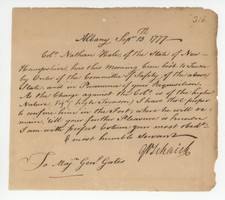 316
Albany Sepr. 13. 1777
Colo. Nathan Hale, of the State of New
Hampshire, has this Morning been sent to Town
by Order of the Committee of Safety of the above
State, and in Pursuance of your Requisition
As the Charge against the Colo. is of the highest
Nature High Treason, I have thot proper
to confine him in the Fort, where he will re-
main till your further Pleasure is known
I am with perfect Esteem your most obedt.
& most humble Servant
To Majr. Genl. Gates